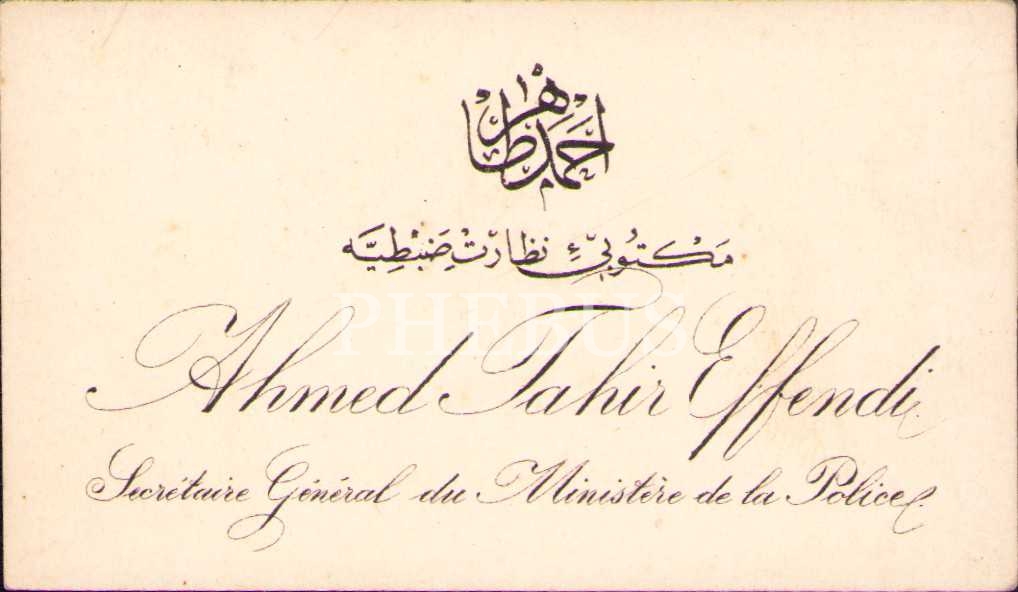 احمد طاهر
مكتوبئ نظارت ضبطيه
PHEBUS
Ahmed Tahir Effendi
Secrétaire Général du Ministère de la Police.